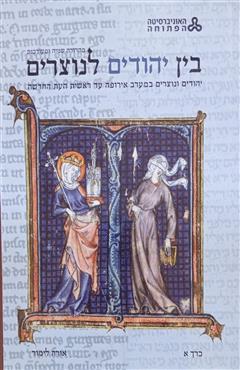 האוניברסיטה
הפתוחה
מהדורה שנייה ומעודכנת
בין יהודים לנוצרים
יהודים ונוצרים במערב אירופה עד ראשית העת החדשה
כרך א
אורה לימור